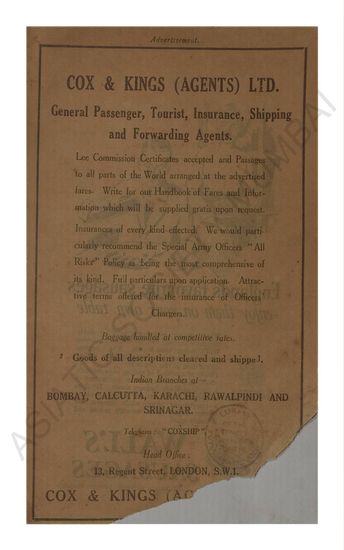 Advertisement.
COX & KINGS (AGENTS) LTD.
General Passenger, Tourist, Insurance, Shipping
and Forwarding Agents.
Lee Commission Certificates accepted and Passages
to all parts of the World arranged at the advertised
fares. Write for our Handbook of Fares and Infor-
mation which will be supplied gratis upon request.
Insurances of every kind effected. We would parti-
cularly recommend the Special Army Officers "All
Risks" Policy as being the most comprehensive of
its kind. Full particulars upon application. Attrac-
tive terms offered for the insurance of Officers'
Chargers.
Baggage handled at competitive rates.
Goods of all descriptions cleared and shipped.
Indian Branches at
BOMBAY, CALCUTTA, KARACHI, RAWALPINDI AND
SRINAGAR.
Telegrams :- "COXSHIP".
Head Office :
13, Regent Street, LONDON, S.W.1.
COX & KINGS (AG
ASIATIC SOCIETY OF MUMBAI